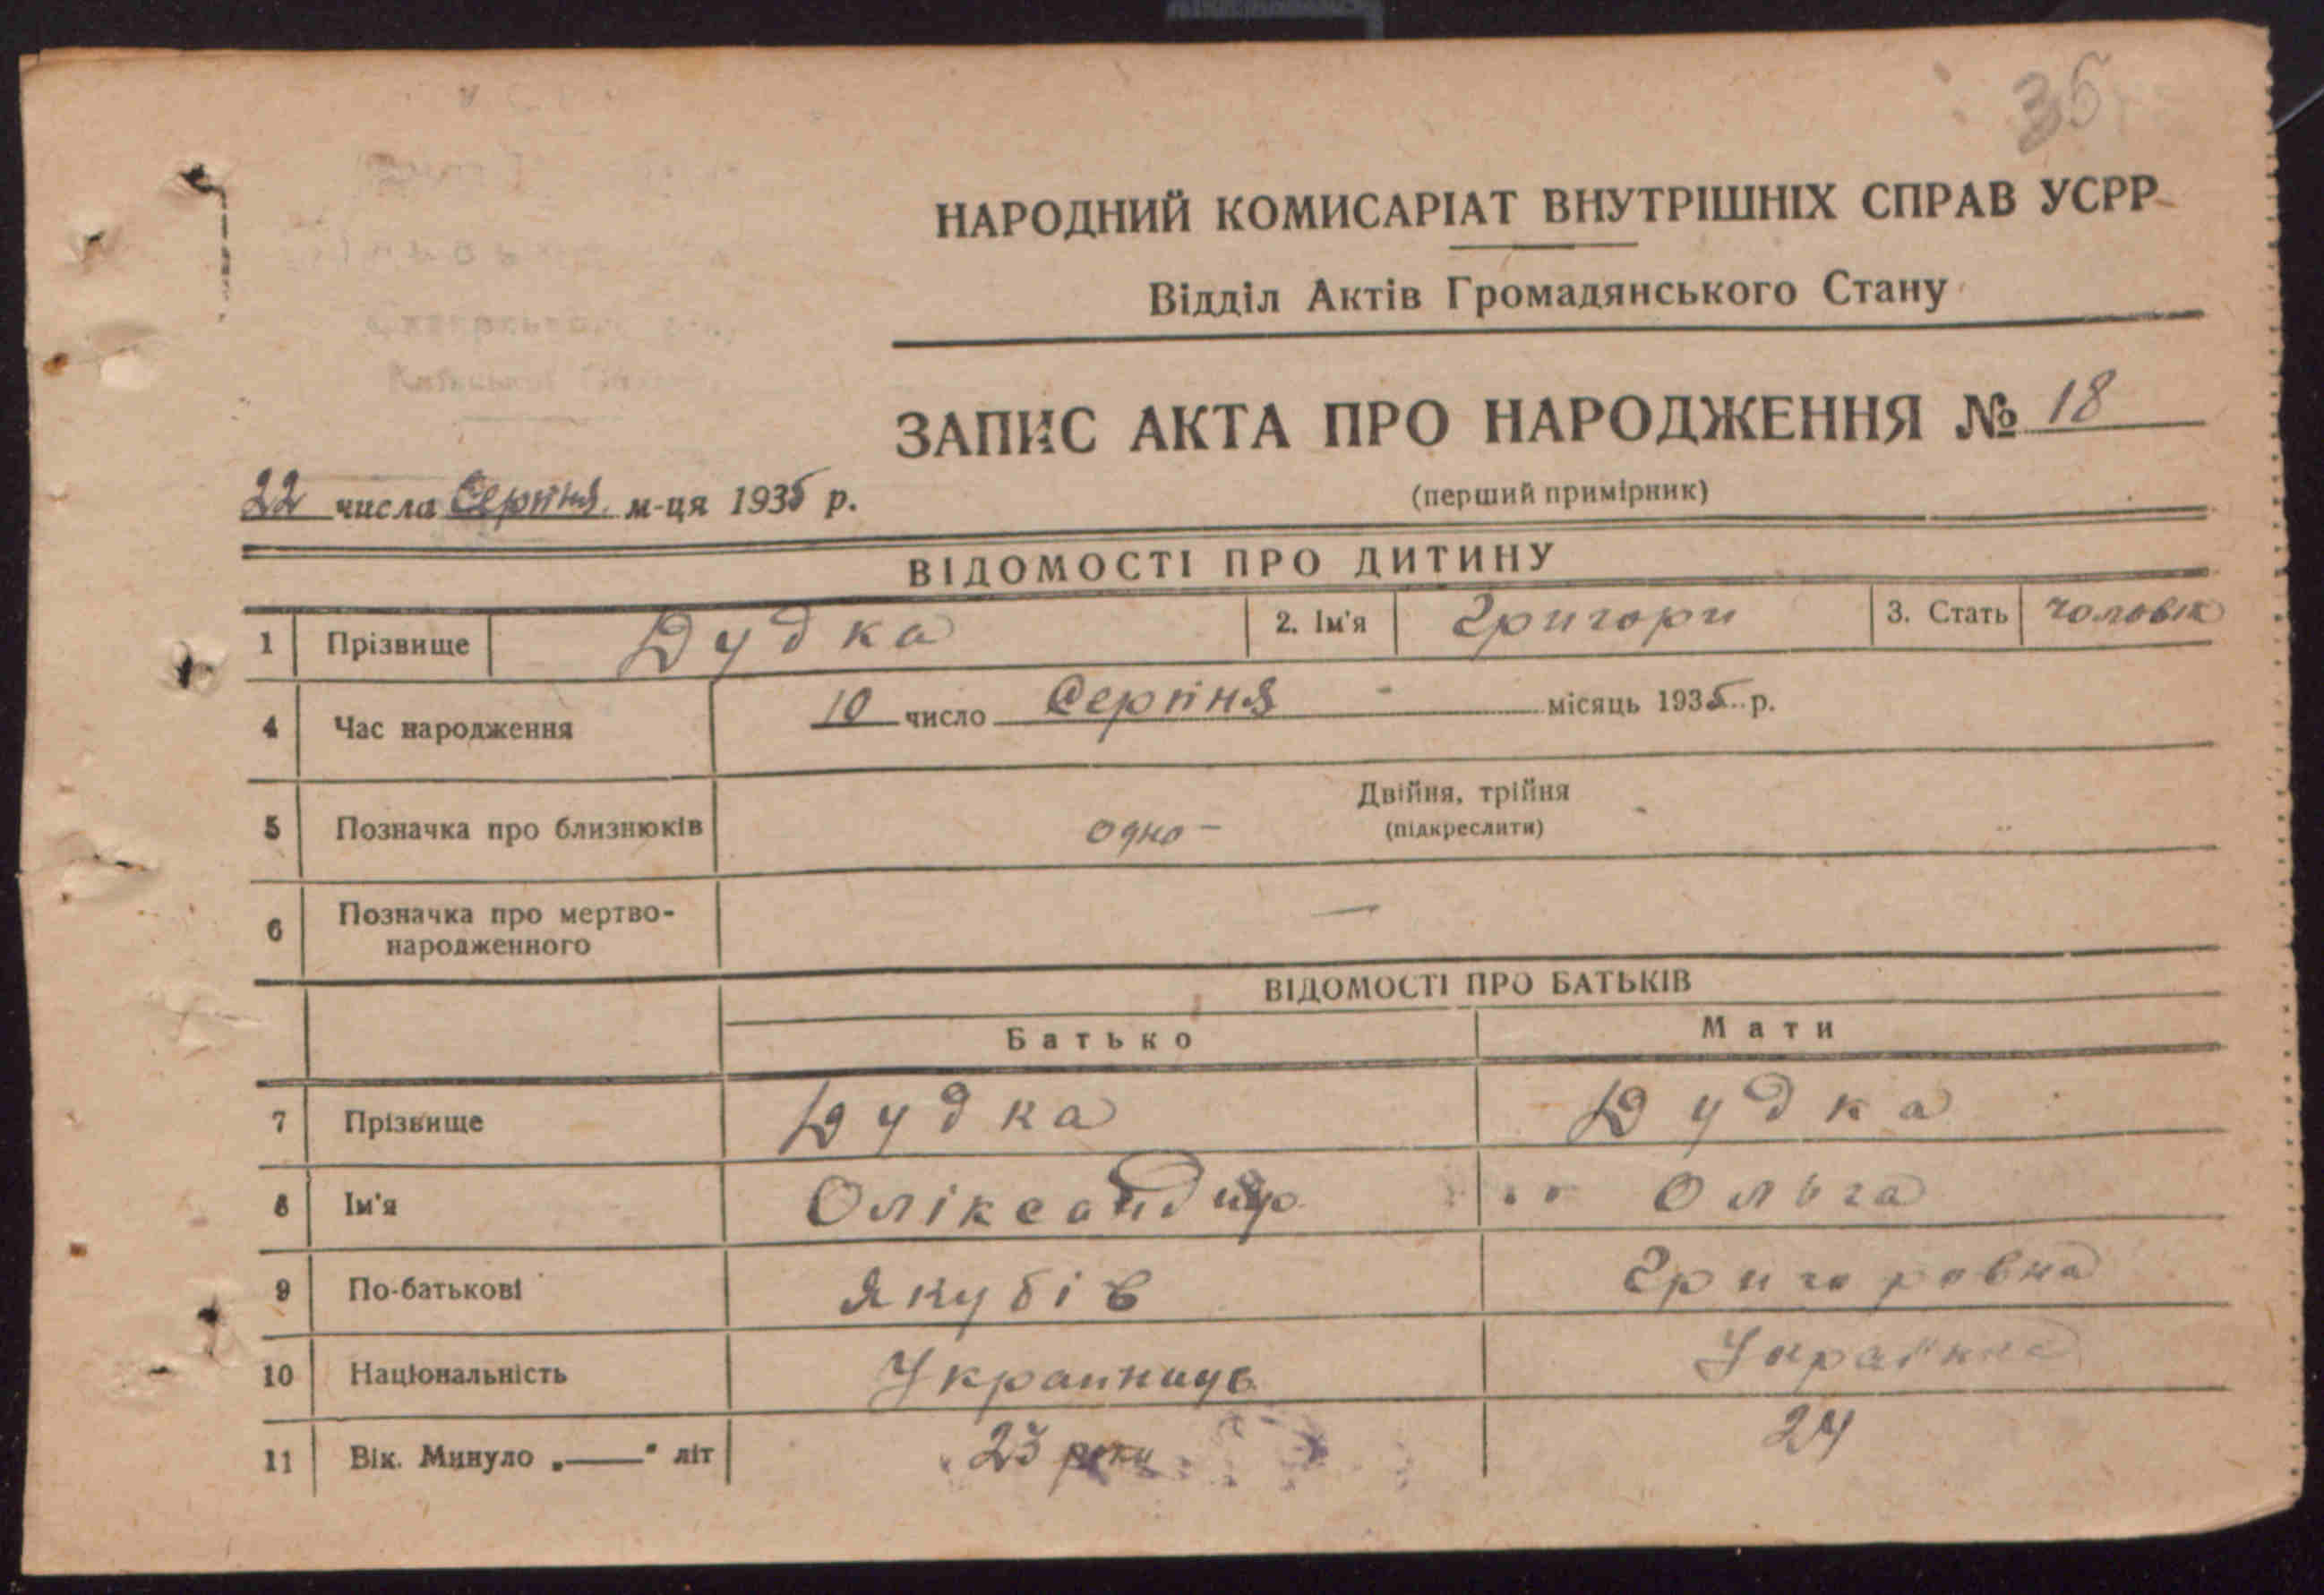 35
НАРОДНИЙ КОМИСАРІАТ ВНУТРІШНІХ СПРАВ УСРР
Відділ Актів Громадянського Стану
ЗАПИС АКТА ПРО НАРОДЖЕННЯ № 18
(перший примірник)
22 числа Серпня м-ця 1935 р.
ВІДОМОСТІ ПРО ДИТИНУ
1 Прізвище Дудка 2. Ім'я Григори 3. Стать чоловік
4 Час народження 10 число Серпня місяць 1935 р.
Двійня, трійня
5 Позначка про близнюків одно - (підкреслити)
6 Позначка про мертво-
народженного —
ВІДОМОСТІ ПРО БАТЬКІВ
Батько Мати
7 Прізвище Дудка Дудка
8 Ім'я Ольга
9 По-батькові Якубів Григоровна
10 Національність Украинець
11 Вік. Минуло „—" літ 23 роки 24